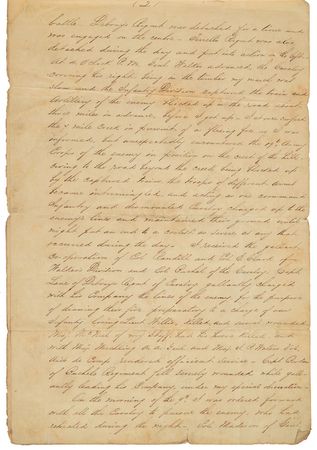 (2)
battle. Debray's Regiment was detached for a time and
was engaged on the centre. Terrell's Regiment was also
detached during the day and got into action on the left.
At 4 o'clock P.M. Genl Walker advanced, the Cavalry
covering his right, being in the timber my march was
slow and the Infantry Division captured the train and
Artillery of the enemy blocked up in the road about
three miles in advance, before I got up. I at once crossed
the Mill Creek in pursuit of a fleeing foe as I was
informed, but unexpectedly encountered the 19th Army
Corps of the enemy in position on the crest of the hill
Owing to the road beyond the creek being blocked up
by the captured train the troops of different arms
became intermingled, but acting as one command
Infantry and dismounted Cavalry charged up to the
enemy's lines and maintained their ground until
night put an end to a contest as severe as any that
occurred during the day. I received the gallant
cooperation of Col Randall and Col E. Clark of
Walker's Division and Col Buchel of the Cavalry. Capt
Lane of Debray's Regmt of Cavalry gallantly charged
with his Company the lines of the enemy for the purpose
of drawing their fire preparatory to a charge of our
Infantry. Lieut
killed, and several wounded
of my Staff had his horse killed, and
with Maj
Aids de Camp rendered efficient service. Capt
of Buchel's Regiment fell severely wounded while gal-
lantly leading his Company, under my special direction.
On the morning of the 9th I was ordered forward
with all the Cavalry to pursue the enemy, who had
retreated during the night. Col Madison of Genl